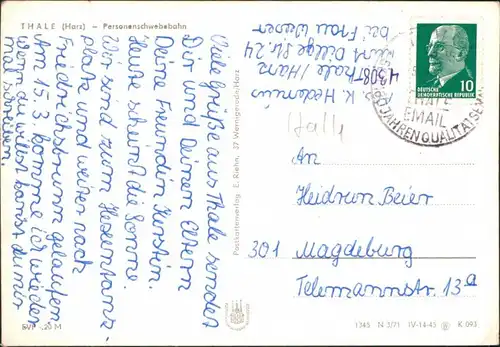 THALE (Harz) – Personenschwebebahn
Viele Grüße aus Thale sendet
Dir und Deinen Eltern
Deine Freundin Kerstin.
Heute scheint die Sonne.
Wir sind zum Hexentanz-
platz und weiter nach
Friedrichsbrunn gelaufen
Am 15.3. komme ich wieder
Wenn du willst kannst du mir
mal schreiben.
EVP -,20 M
Postkartenverlag E. Riehn, 37 Wernigerode/Harz
K.
4308 Thale/Harz
Str. 24
bei Frau
DEUTSCHE
DEMOKRATISCHE REPUBLIK
10
EMAIL
JAHREN QUALITÄT
An
Heidrun Beier
301 Magdeburg
Telemannstr. 13a
1345 N 3/71 IV-14-45 K 093